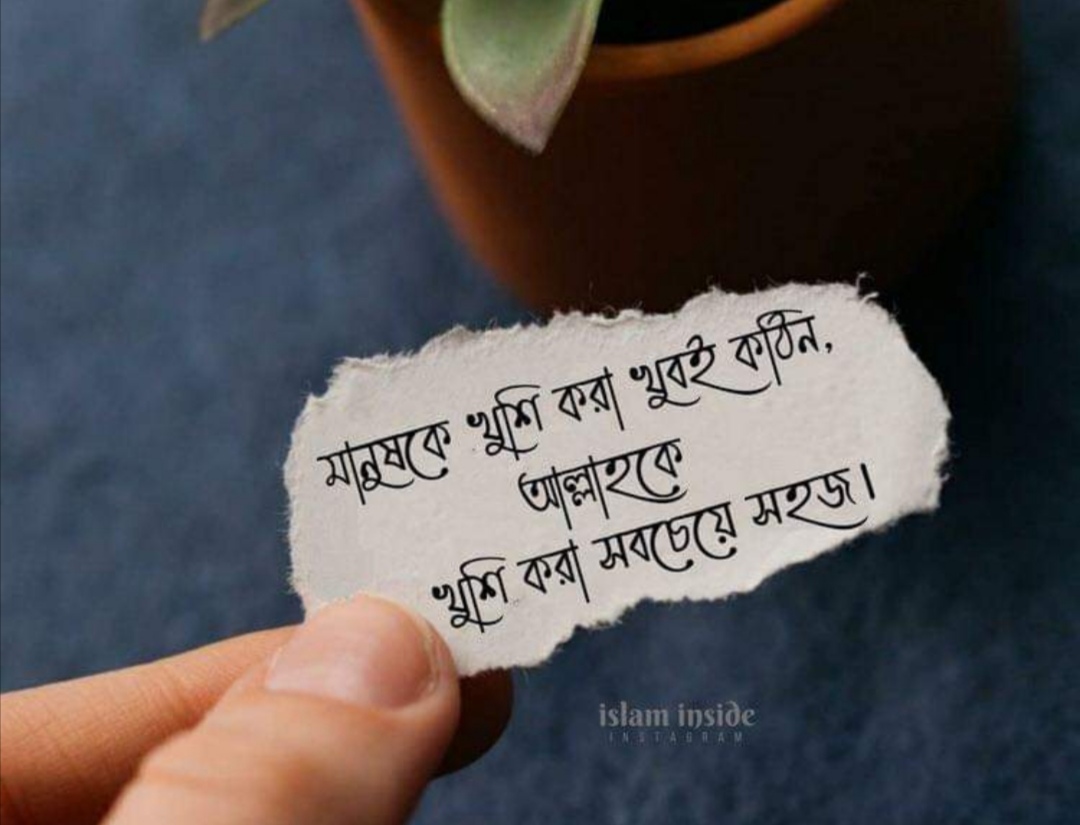 মানুষকে খুশি করা খুবই কঠিন,
আল্লাহকে
খুশি করা সবচেয়ে সহজ।
islam inside
INSTAGRAM